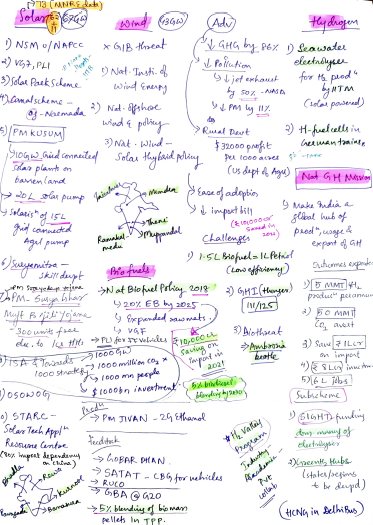 73 (MNRE data)
Solar
62
+
11
67GW
1) NSM o/NAPCC
2) VGF, PLI
3) Solar Park Scheme
4) Canal scheme -
Narmada
5) PM KUSUM
→ 10GW Grid connected
solar plants on
barren land
→ 20L solar pump
→ Solaris" of 15L
grid connected
Agri pump
6) Suryamitra -
skill devpt
PM Suryodaya Yojana
→ PM-Surya Ghar
Muft Bijli Yojana
- 300 units free
due to 1cr HHs
1000GW
1000 million CO2
1000 mn people
$ 1000bn investment
OSOWOG
STARC -
Solar Tech Appl"
Resource Centre
(80% import dependency
on China)
Bhadla
Rewa
Kurnool
Wind
43GW
× GIB threat
1) Nat. Insti. of
Wind Energy
2) Nat. Offshore
wind & policy
3) Nat. Wind -
Solar hybrid policy
Jaisalmer
Mundra
Theni
Muppandal
Biofuels
→ Nat Biofuel Policy 2018
→ 20% EB by 2025
→ Expanded raw mats
→ VGF
→ PLI for FF vehicles
₹10,000 cr
Saving on
import in
2021
5% biodiesel
blending by 2030
Prod"
→ PM JIVAN - 2G Ethanol
Feedstock
→ GOBAR DHAN
→ SATAT - CBG for vehicles
→ RUCO
→ GBA @ G20
→ 5% blending of biomass
pellets in TPP.
Adv
→ ↓ GHG by 86%
→ ↓ Pollution
↓ jet exhaust
by 50% - NASA
↓ PM by 11%
→ Rural Devt
$ 32000 profit
per 1000 acres
(US dept of Agri)
→ Ease of adoption
→ ↓ import bill
₹10,000 cr
Saved in
Challenges
1) 1.5L Biofuel = 1L Petrol
(Low efficiency)
2) GHI (Hunger)
111/125
3) Biothreat
→ Ambrosia
beetle
* H2 Valley
Program
Industry
Academia
Pvt
collab
Hydrogen
1) Seawater
electrolyser
for H2 prod"
by IITM
(solar powered)
2) H-fuel cells in
German trains
Nat GH Mission
1) Make India a
global hub of
prod", usage &
export of GH
Outcomes expected
1) 5 MMT H2
product" per annum
2) 50 MMT
CO2 avert
3) Save ₹1Lcr
on import
4) ₹8Lcr
5) 6L jobs
Subscheme
1) SIGHT: funding
dom. manuf of
electrolyser
2) Green H2 Hubs
(states/regions
to be devpd)
(HCNG in Delhi Bus)